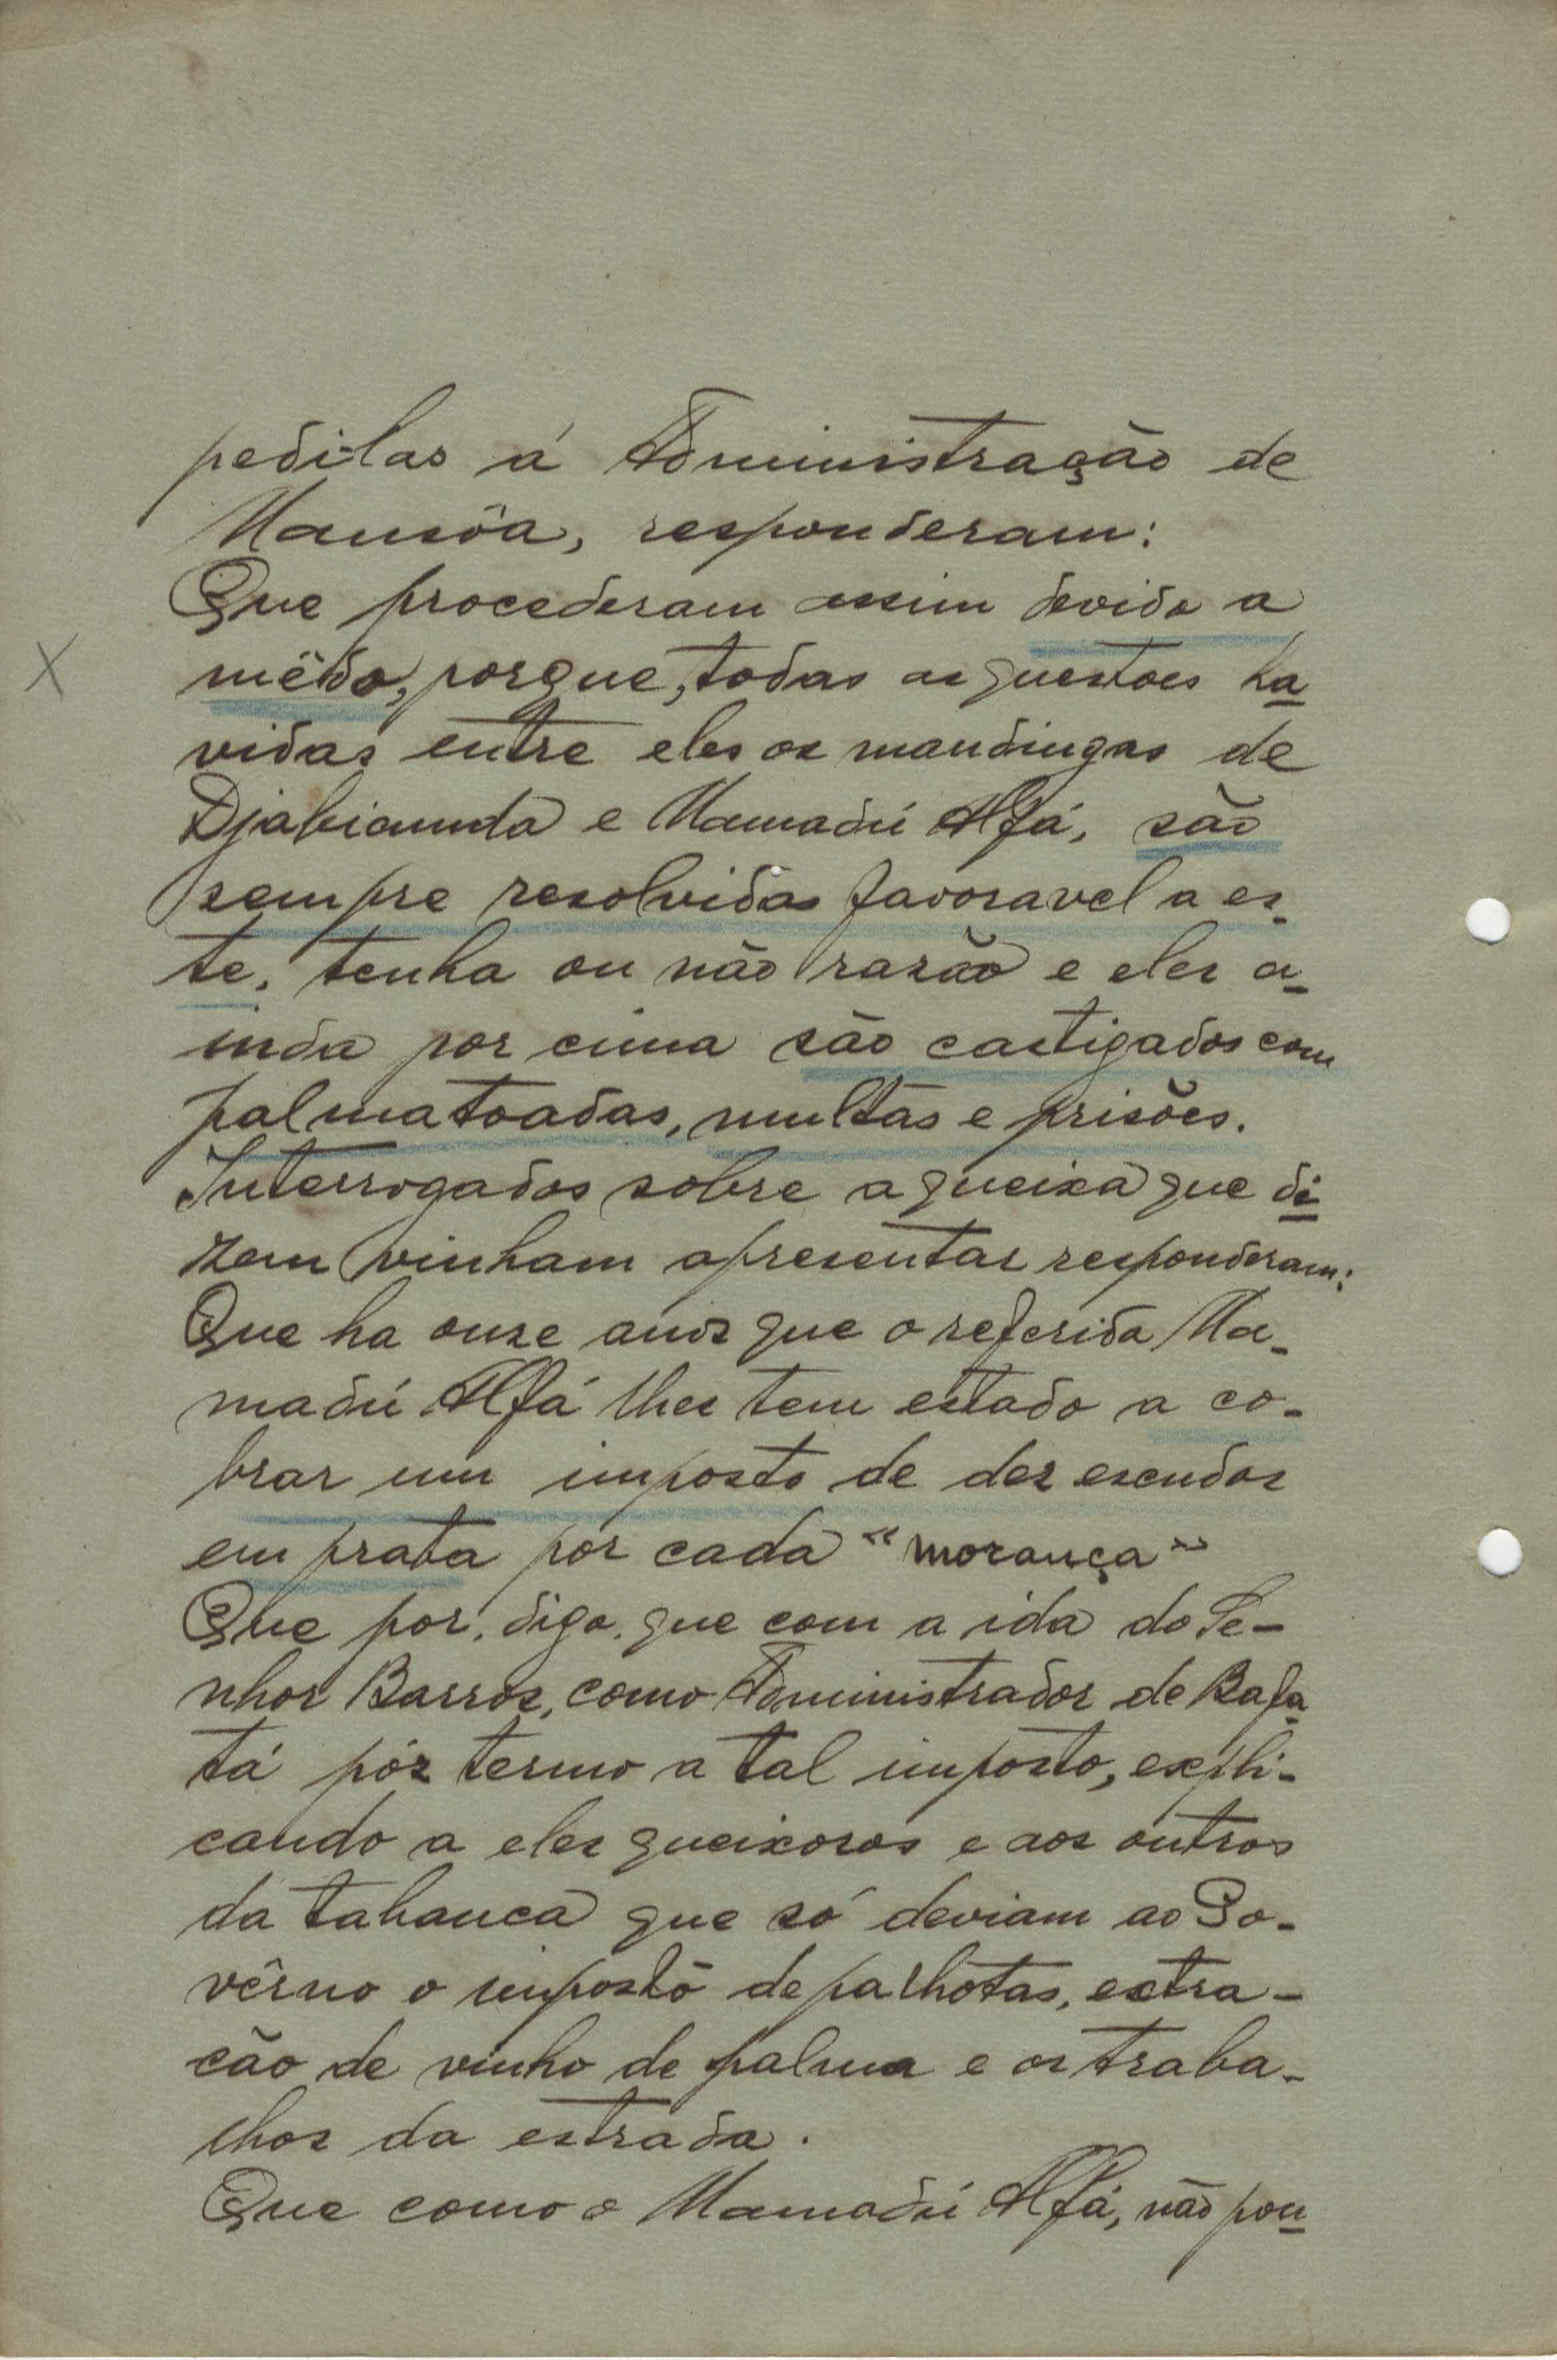 pedi-las á Administração de
Mansôa, responderam:
Que procederam assim devido a
mêdo, porque, todas as questões ha
vidas entre eles os mandingas de
Djabicunda e Mamadú Alfá, são
sempre resolvidas favoravel a es-
te, tenha ou não razão e eles a-
inda por cima são castigados com
palmatoadas, multas e prisões.
Interrogados sobre a queixa que di
zem vinham apresentar responderam:
Que ha onze anos que o referido Ma-
madú Alfá lhes tem estado a co-
brar um imposto de dez escudos
em prata por cada "morança"
Que por, digo, que com a ida do Se-
nhor Barros, como Administrador de Bafa
tá pôz termo a tal imposto, expli-
cando a eles queixosos e aos outros
da tabanca que só deviam ao Go-
vêrno o imposto de palhotas, extra-
ção de vinho de palma e os traba-
lhos da estrada.
Que como o Mamadú Alfá, não pou
X